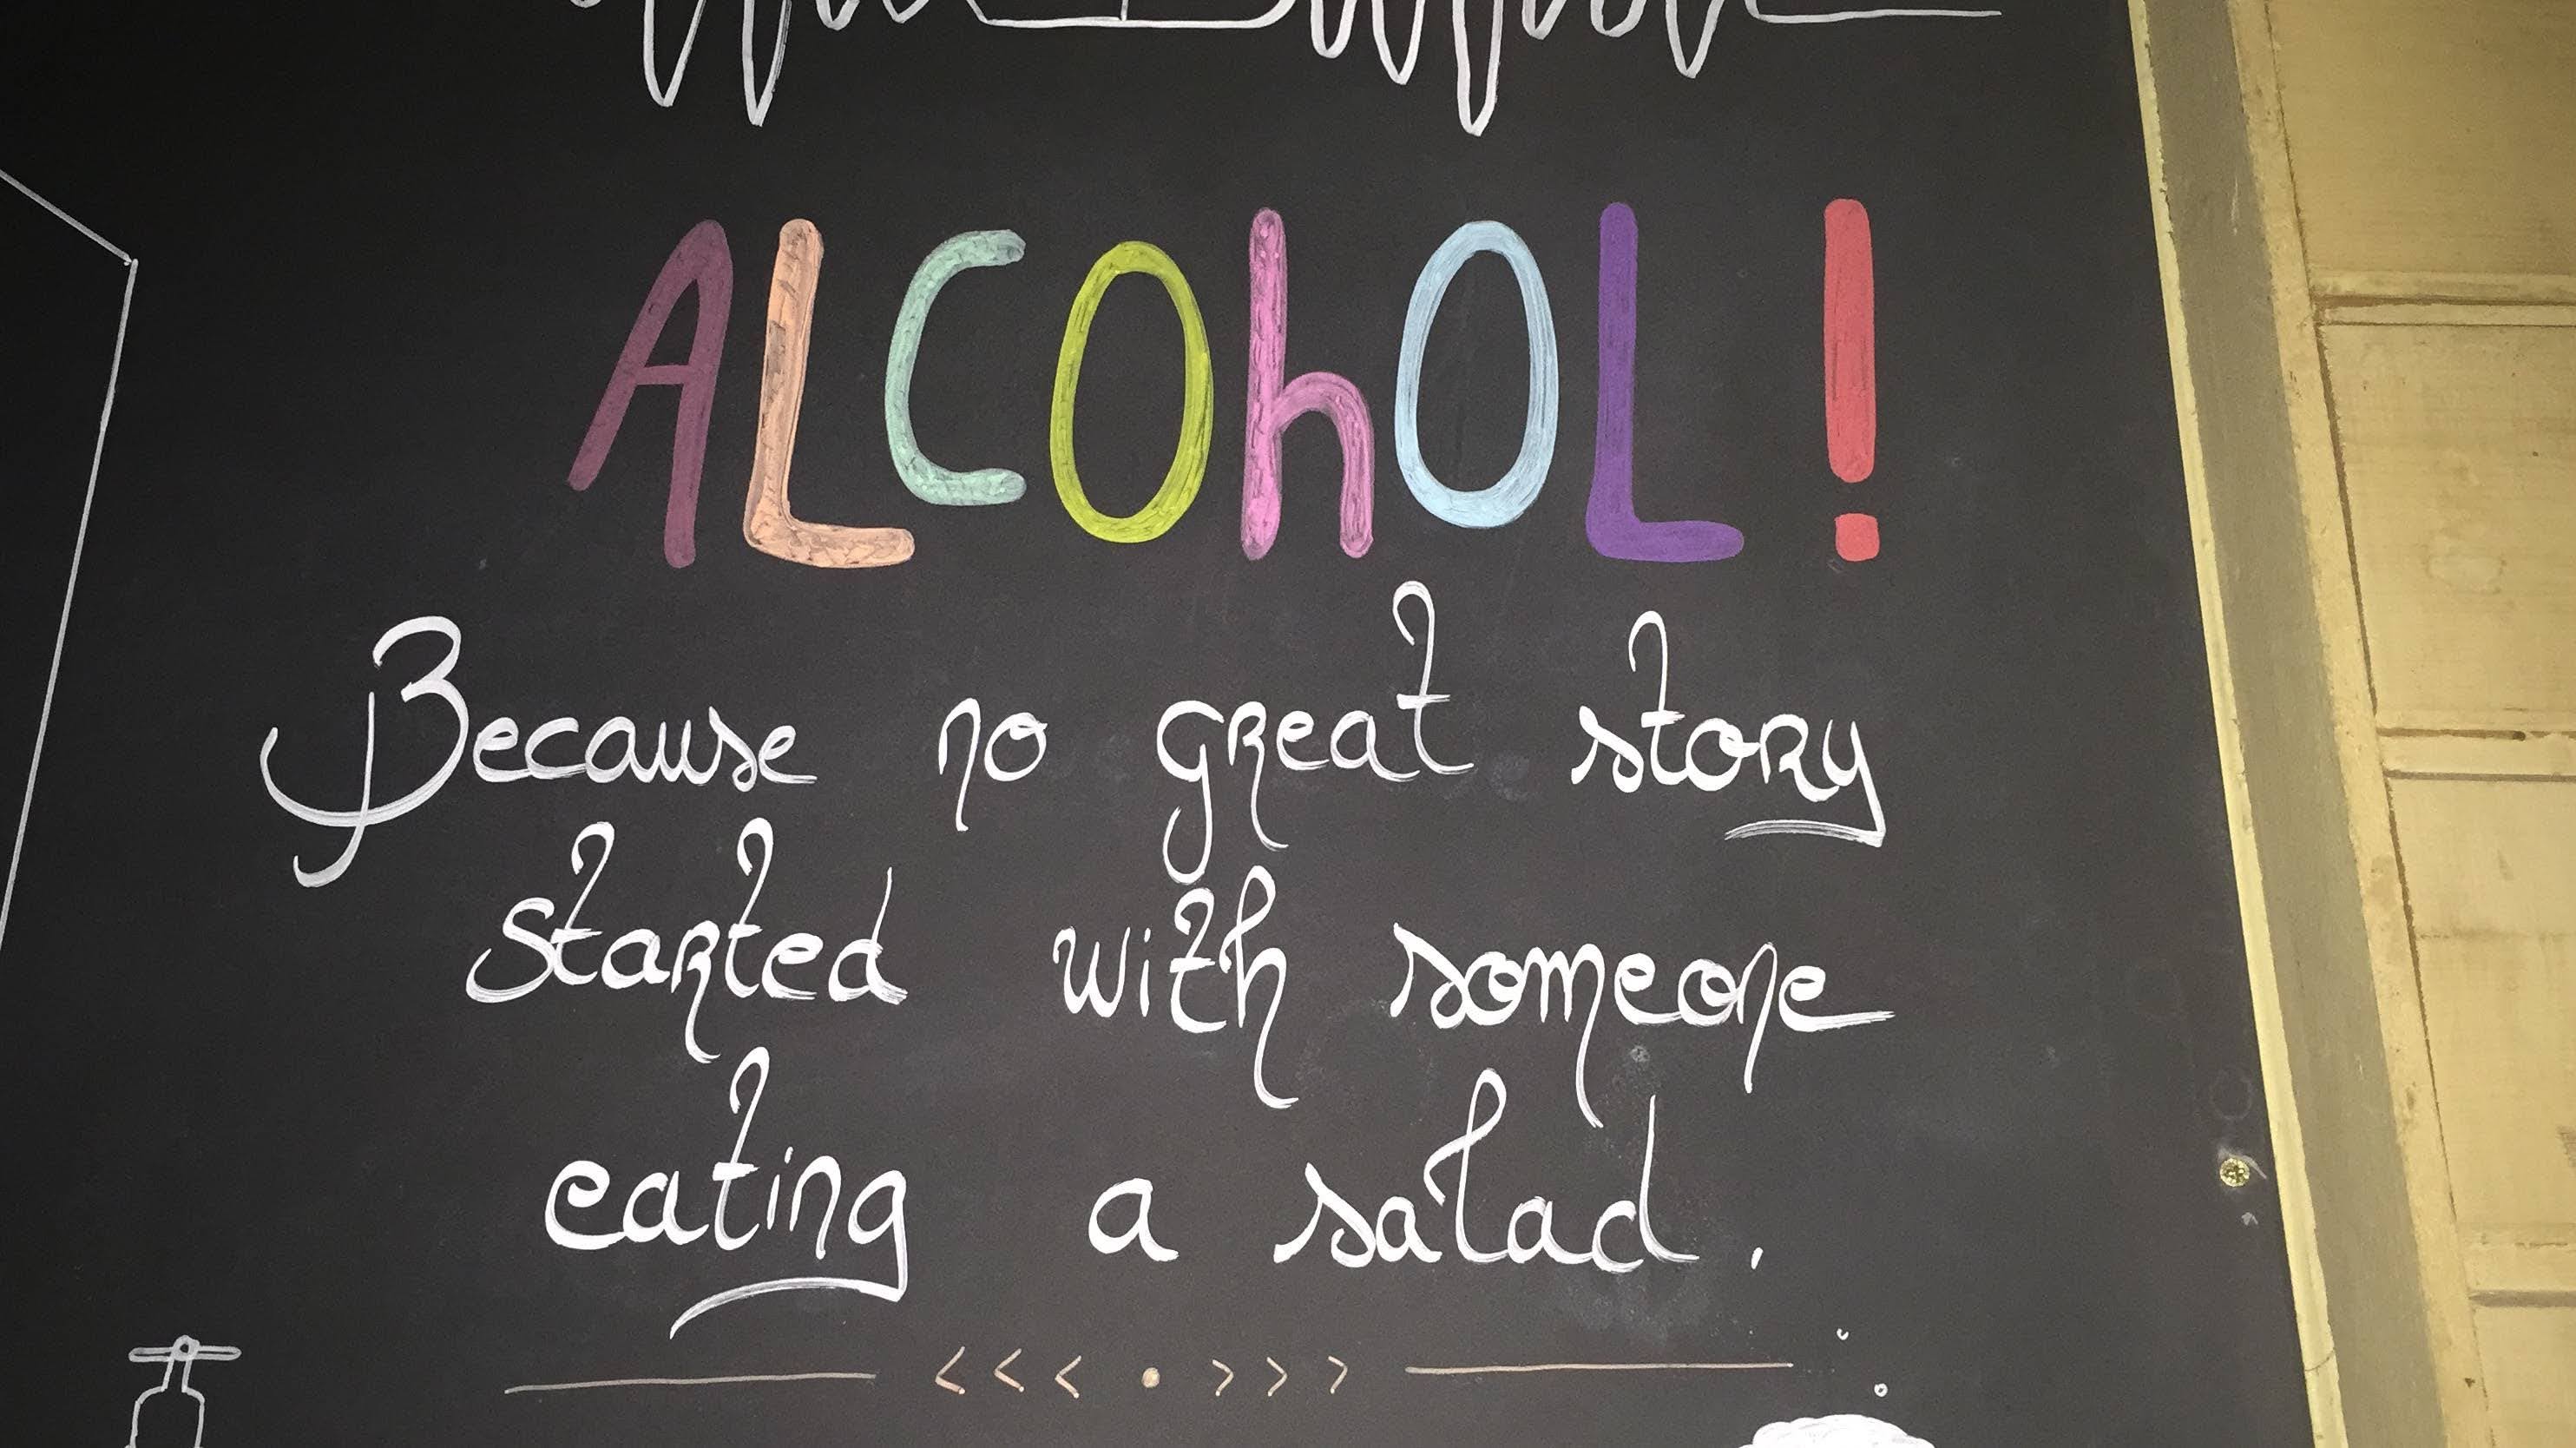 ALCOhOL!
Because no great story
started with someone
eating a salad.
<<< • >>>